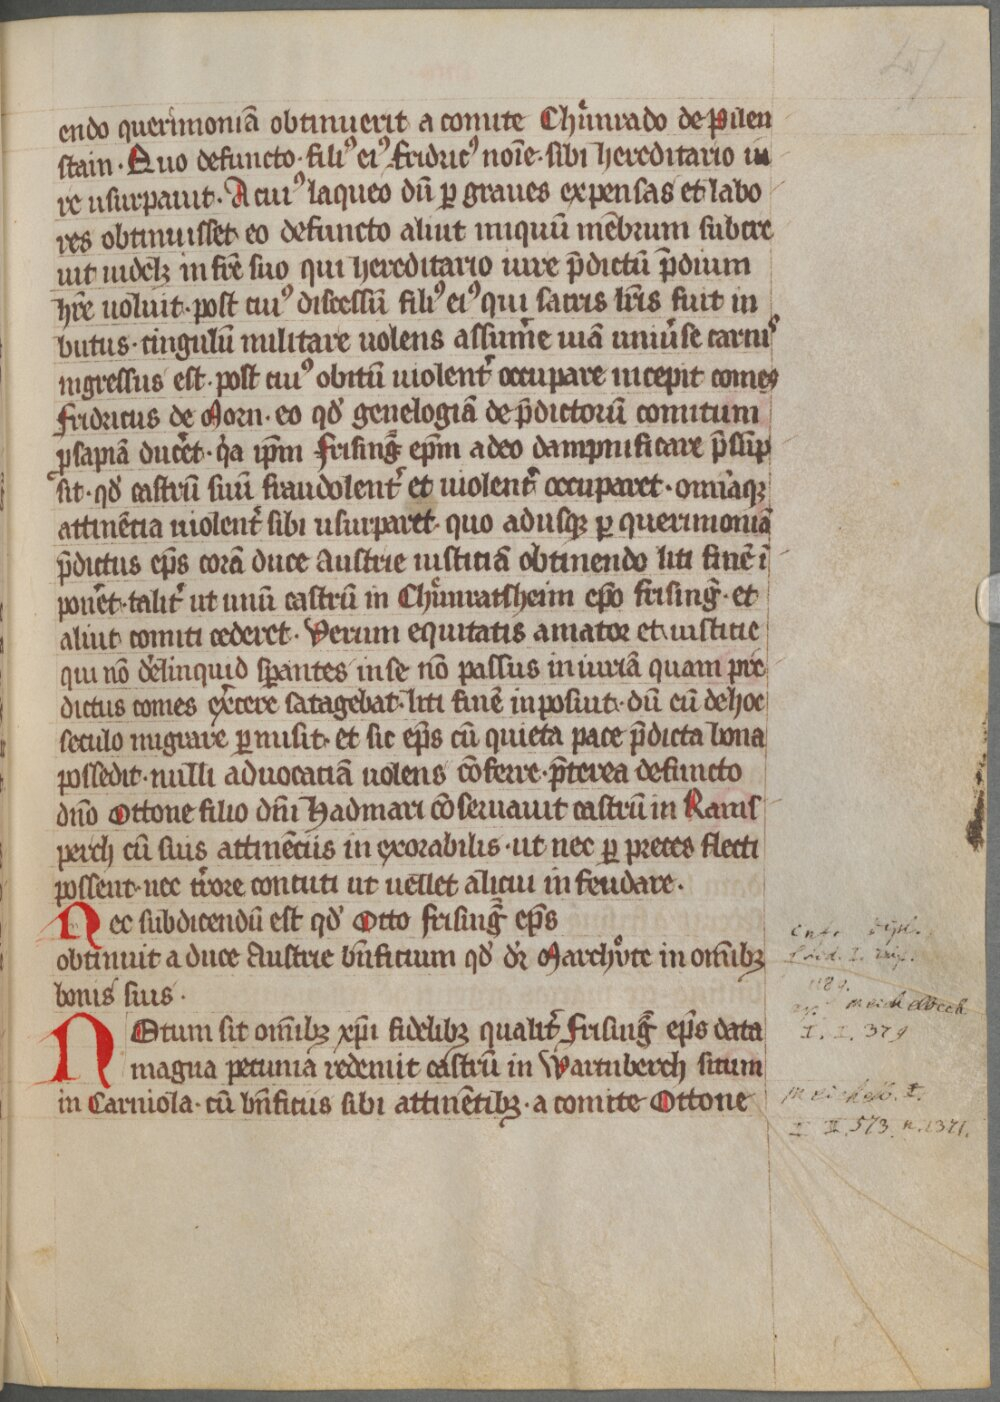 endo querimoniā obtinuerit a comite Chůnrado de Pilen
stain · Quo defuncto · filiꝰ eiꝰ fridricꝰ noīe · sibi hereditario iu
re usurpauit · A cuiꝰ laqueo dū ꝑ graues expensas et labo
res obtinuisset eo defuncto aliut iniquū mēbrum subcre
uit uidelꝫ in frē suo qui hereditario iure p̄dictū p̄dium
hr̄e uoluit · post cuiꝰ discessū filiꝰ eiꝰ qui sacris lr̄is fuit in
butus · cingulū militare uolens assum̄e uiā uniūse carnis
ingressus est · post cuiꝰ obitū uiolent̄ occupare incepit comes
fridricus de Morn · eo qd̓ genelogiā de p̄dictorū comitum
ꝓsapiā ducēt · q̇a ip̄m frisinḡ ep̄m adeo dampnificare p̄sūp
sit · qd̓ castrū suū fraudolent̄ et uiolent̄ occuparet · omīaqꝫ
attinētia uiolent̄ sibi usurparet · quo adusqꝫ ꝑ querimoniā
p̄dictus ep̄s corā duce Austrie iusticiā obtinendo liti finē ī
ponēt · talit̄ ut unū castrū in Chůnratsheim ep̄o frisinḡ · et
aliut comiti cederet · Verum equitatis amator et iusticie
qui nō delinquid sperantes in se nō passus iniuriā quam pre
dictus comes ex̄cere satagebat · liti finē inposuit · dū eū de hoc
seculo migrare ꝑmisit · et sic ep̄s cū quieta pace p̄dicta bona
possedit · nulli aduocatiā uolens cōferre · p̄terea defuncto
dn̄o Ottone filio dn̄i Hadmari cōseruauit castrū in Ranis
perch cū suis attinēciis inexorabilis · ut nec ꝑ preces flecti
possent · nec t̄rore concuti ut uellet alicui infeudare ·
Nec subdicendū est qd̓ Otto frisinḡ ep̄s
obtinuit a duce Austrie bn̄ficium qd̓ dr̄ Marchůte in omībꝫ
bonis suis ·
Notum sit omībꝫ xp̄i fidelibꝫ qualit̄ frisinḡ ep̄s data
magna pecunia redemit castrū in Wartnberch situm
in Carniola · cū bn̄ficiis sibi attinētibꝫ · a comite Ottone
dipl.
frid. I. imp.
1189.
ap. meichelbeck
I. I. 379
meichelb. t.
II. 573. n. 1371.